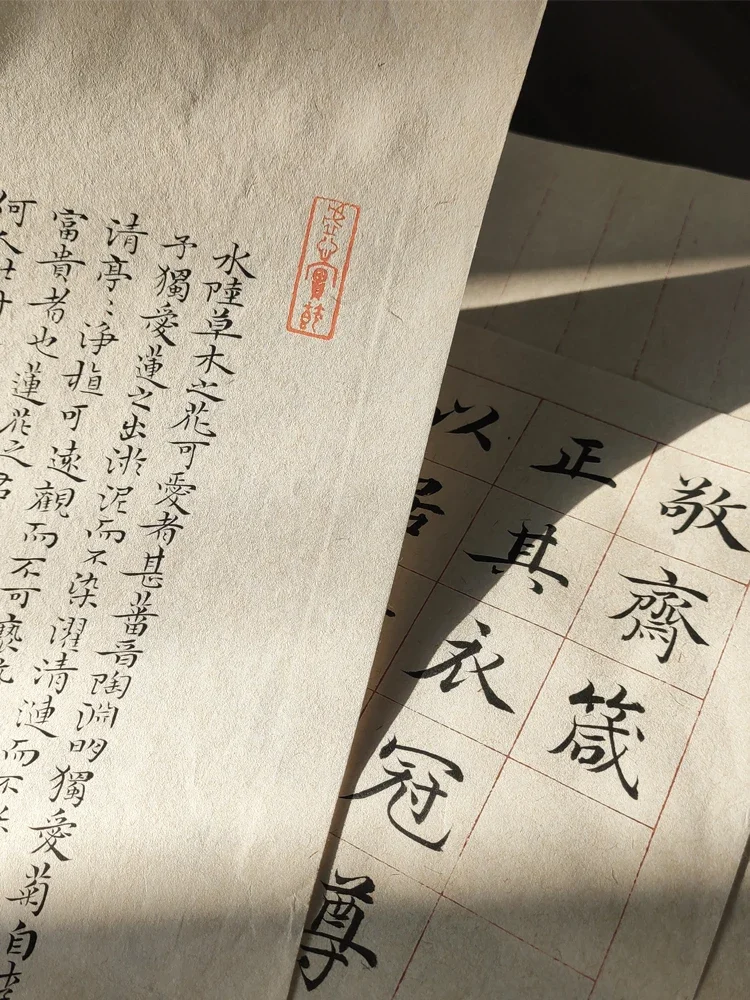 敬齋箴
正其衣冠尊
以居
水陸草木之花可愛者甚蕃晉陶淵明獨愛菊自
予獨愛蓮之出淤泥而不染濯清漣而不
清亭〻淨植可遠觀而不可褻
富貴者也蓮花之君
何人